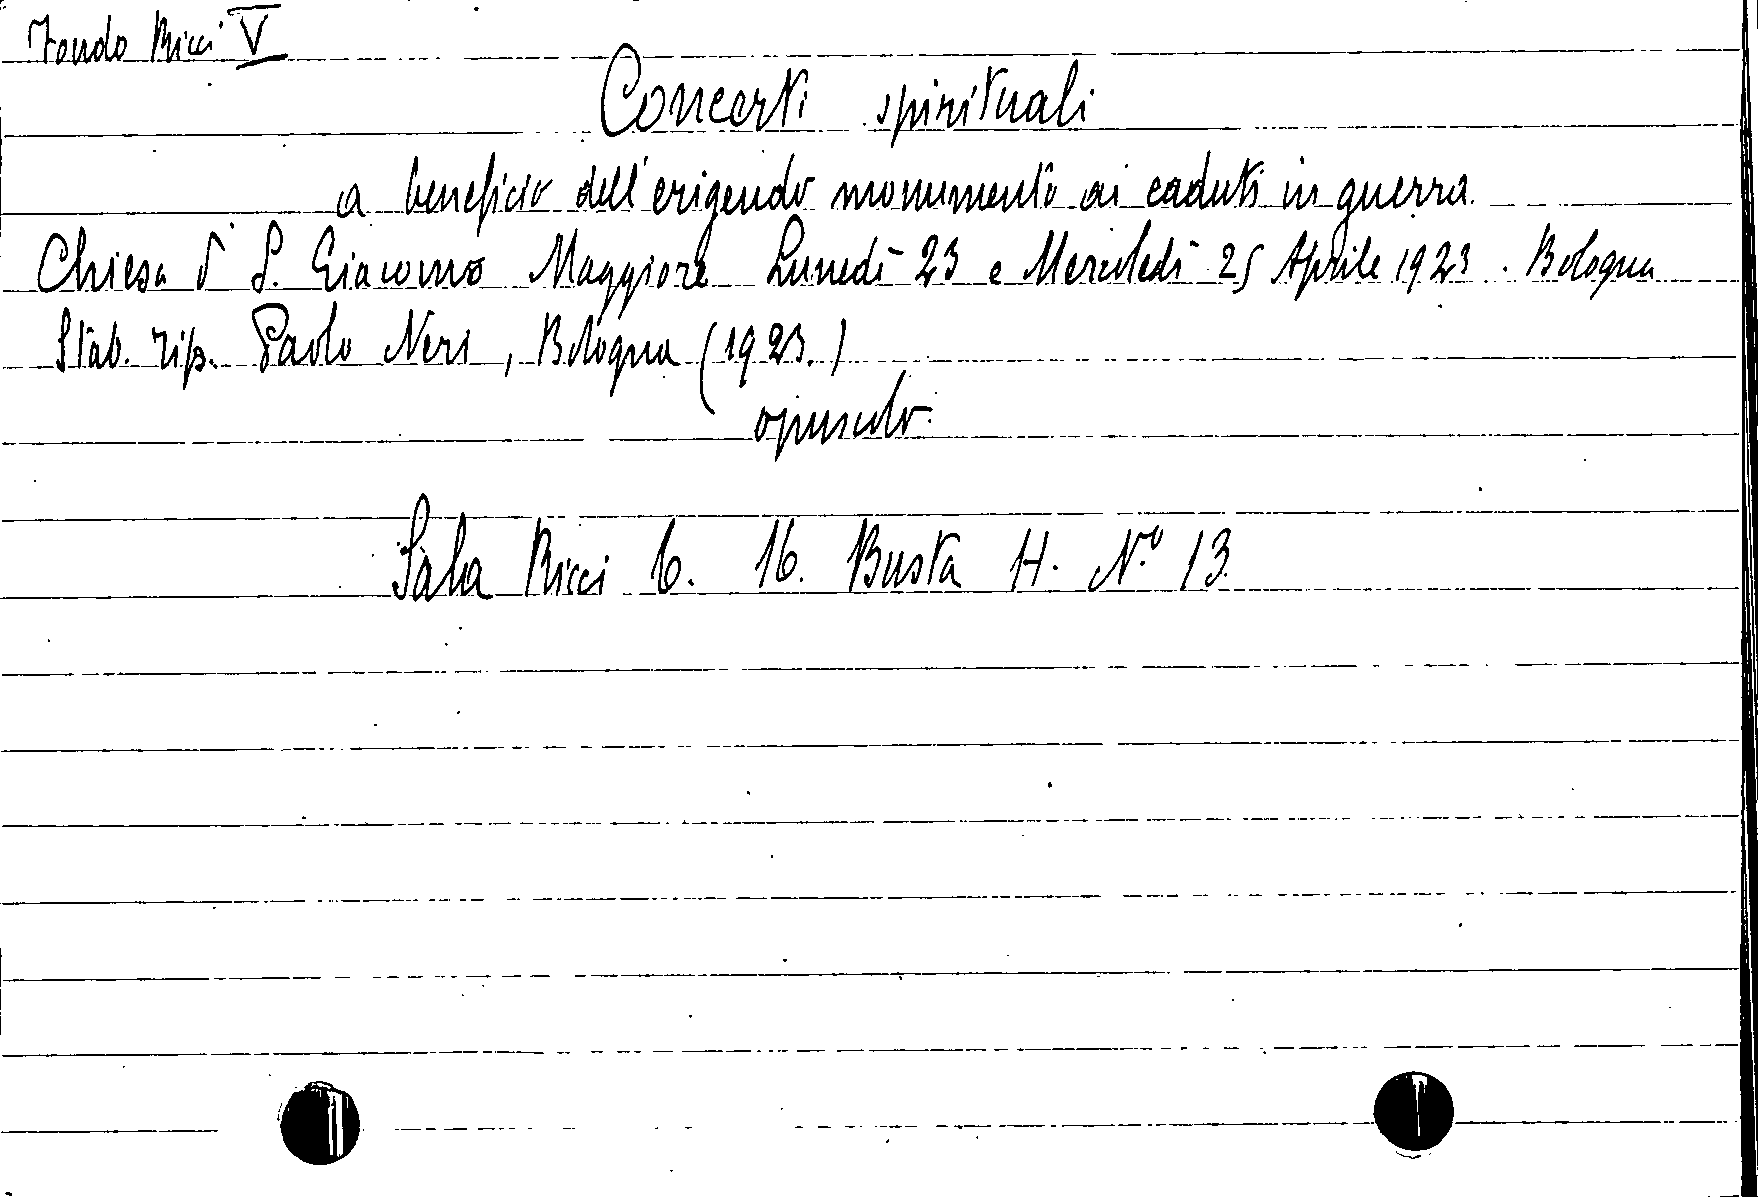 Fondo Ricci V
Concerti spirituali
a beneficio dell'erigendo monumento ai caduti in guerra.
Chiesa di S. Giacomo Maggiore Lunedì 23 e Mercoledì 25 Aprile 1923. Bologna
Stab. Tip. Paolo Neri, Bologna (1923.)
opuscolo.
Sala Ricci 16. Busta H. N.º 13.